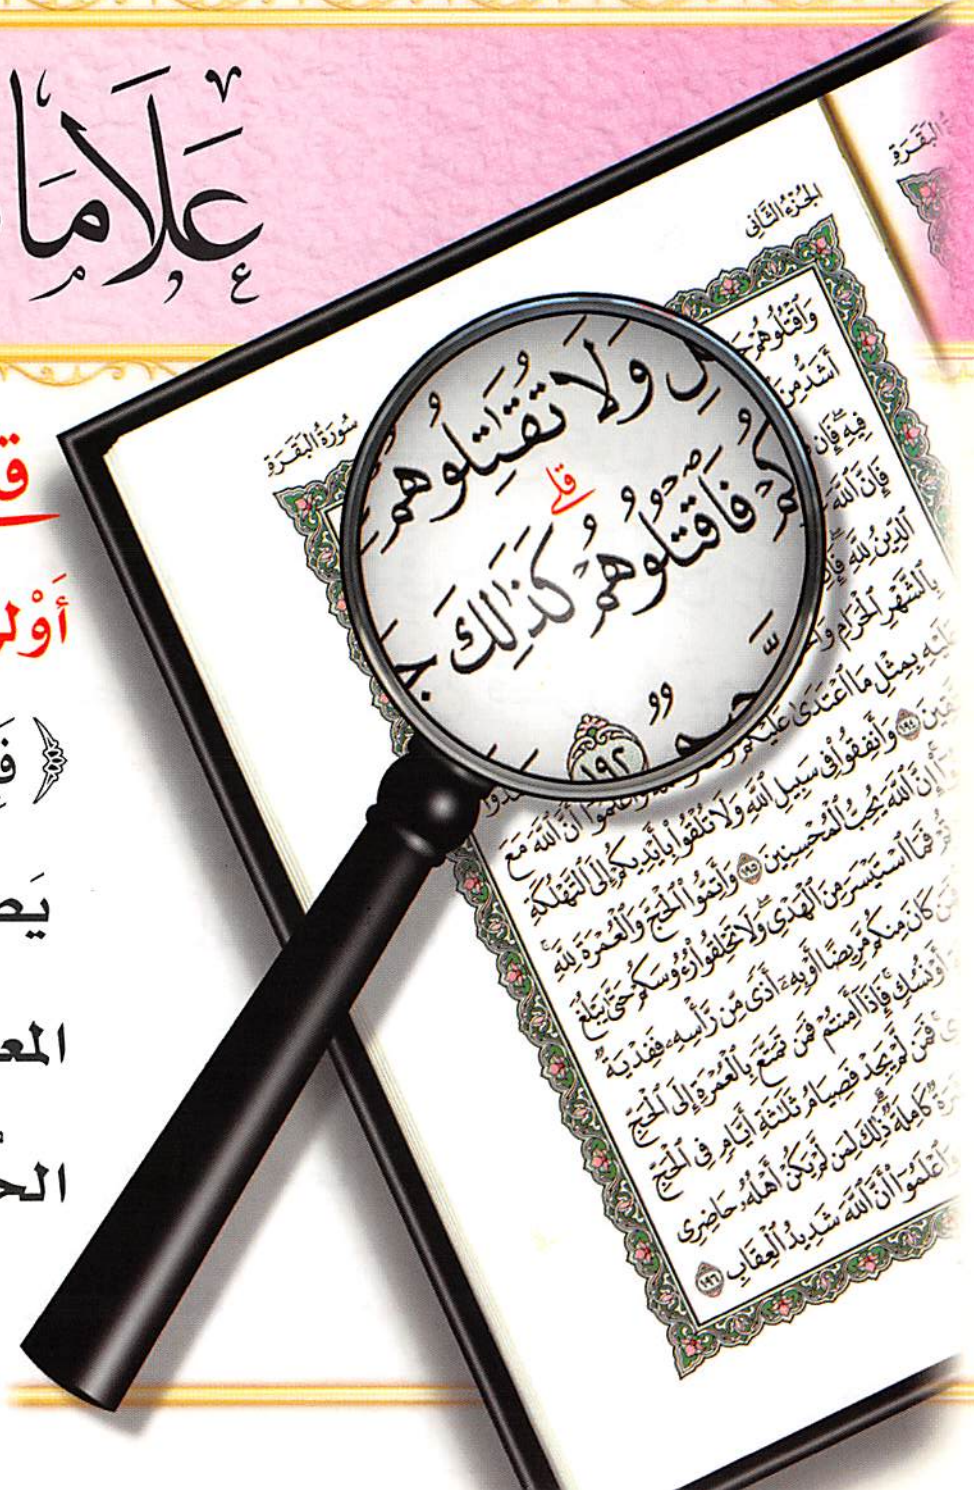 عَلَامَا
البَقَرَةِ
الجُزْءُ الثَّانِي
سُورَةُ البَقَرَةِ
وَٱقْتُلُوهُمْ
أَشَدُّ مِنَ
فِيهِ ۖ فَإِن
فَإِنَّ ٱللَّهَ
ٱلدِّينُ لِلَّهِ ۖ
بِٱلشَّهْرِ ٱلْحَرَامِ
عَلَيْهِ بِمِثْلِ مَا ٱعْتَدَىٰ عَلَيْكُمْ وَٱعْلَمُوٓا۟ أَنَّ ٱللَّهَ مَعَ
١٩٤ وَأَنفِقُوا۟ فِى سَبِيلِ ٱللَّهِ وَلَا تُلْقُوا۟ بِأَيْدِيكُمْ إِلَى ٱلتَّهْلُكَةِ
إِنَّ ٱللَّهَ يُحِبُّ ٱلْمُحْسِنِينَ ١٩٥ وَأَتِمُّوا۟ ٱلْحَجَّ وَٱلْعُمْرَةَ لِلَّهِ ۚ
فَمَا ٱسْتَيْسَرَ مِنَ ٱلْهَدْىِ ۖ وَلَا تَحْلِقُوا۟ رُءُوسَكُمْ حَتَّىٰ يَبْلُغَ
كَانَ مِنكُم مَّرِيضًا أَوْ بِهِۦٓ أَذًى مِّن رَّأْسِهِۦ فَفِدْيَةٌ
أَوْ نُسُكٍ ۚ فَإِذَآ أَمِنتُمْ فَمَن تَمَتَّعَ بِٱلْعُمْرَةِ إِلَى ٱلْحَجِّ
فَمَن لَّمْ يَجِدْ فَصِيَامُ ثَلَٰثَةِ أَيَّامٍ فِى ٱلْحَجِّ
كَامِلَةٌ ۗ ذَٰلِكَ لِمَن لَّمْ يَكُنْ أَهْلُهُۥ حَاضِرِى
وَٱعْلَمُوٓا۟ أَنَّ ٱللَّهَ شَدِيدُ ٱلْعِقَابِ ١٩٦
وَلَا تُقَٰتِلُوهُمْ
قلے
فَٱقْتُلُوهُمْ كَذَٰلِكَ جَ
١٩٢